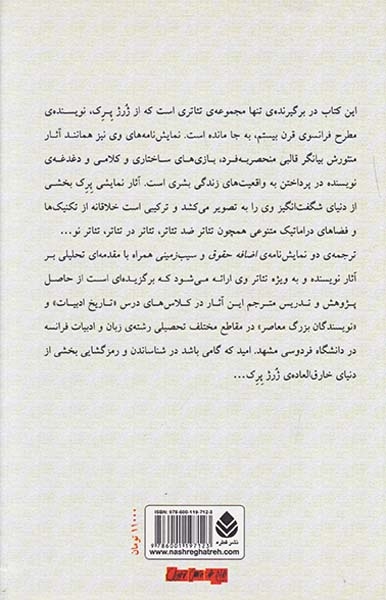 این کتاب در برگیرنده‌ی تنها مجموعه‌ی تئاتری است که از ژُرژ پِرِک، نویسنده‌ی
مطرح فرانسوی قرن بیستم، به جا مانده است. نمایش‌نامه‌های وی نیز همانند آثار
منثورش بیانگر قالبی منحصربه‌فرد، بازی‌های ساختاری و کلامی و دغدغه‌ی
نویسنده در پرداختن به واقعیت‌های زندگی بشری است. آثار نمایشی پِرِک بخشی
از دنیای شگفت‌انگیز وی را به تصویر می‌کشد و ترکیبی است خلاقانه از تکنیک‌ها
و فضاهای دراماتیک متنوعی همچون تئاتر ضد تئاتر، تئاتر در تئاتر، تئاتر نو...
ترجمه‌ی دو نمایش‌نامه‌ی اضافه حقوق و سیب‌زمینی همراه با مقدمه‌ای تحلیلی بر
آثار نویسنده و به ویژه تئاتر وی ارائه می‌شود که برگزیده‌ای است از حاصل
پژوهش و تدریس مترجم این آثار در کلاس‌های درس «تاریخ ادبیات» و
«نویسندگان بزرگ معاصر» در مقاطع مختلف تحصیلی رشته‌ی زبان و ادبیات فرانسه
در دانشگاه فردوسی مشهد. امید که گامی باشد در شناساندن و رمزگشایی بخشی از
دنیای خارق‌العاده‌ی ژُرژ پِرِک...
۱۱۰۰۰ تومان
ISBN: 978-600-119-712-3
9786001197123
نشر قطره
www.nashreghatreh.com